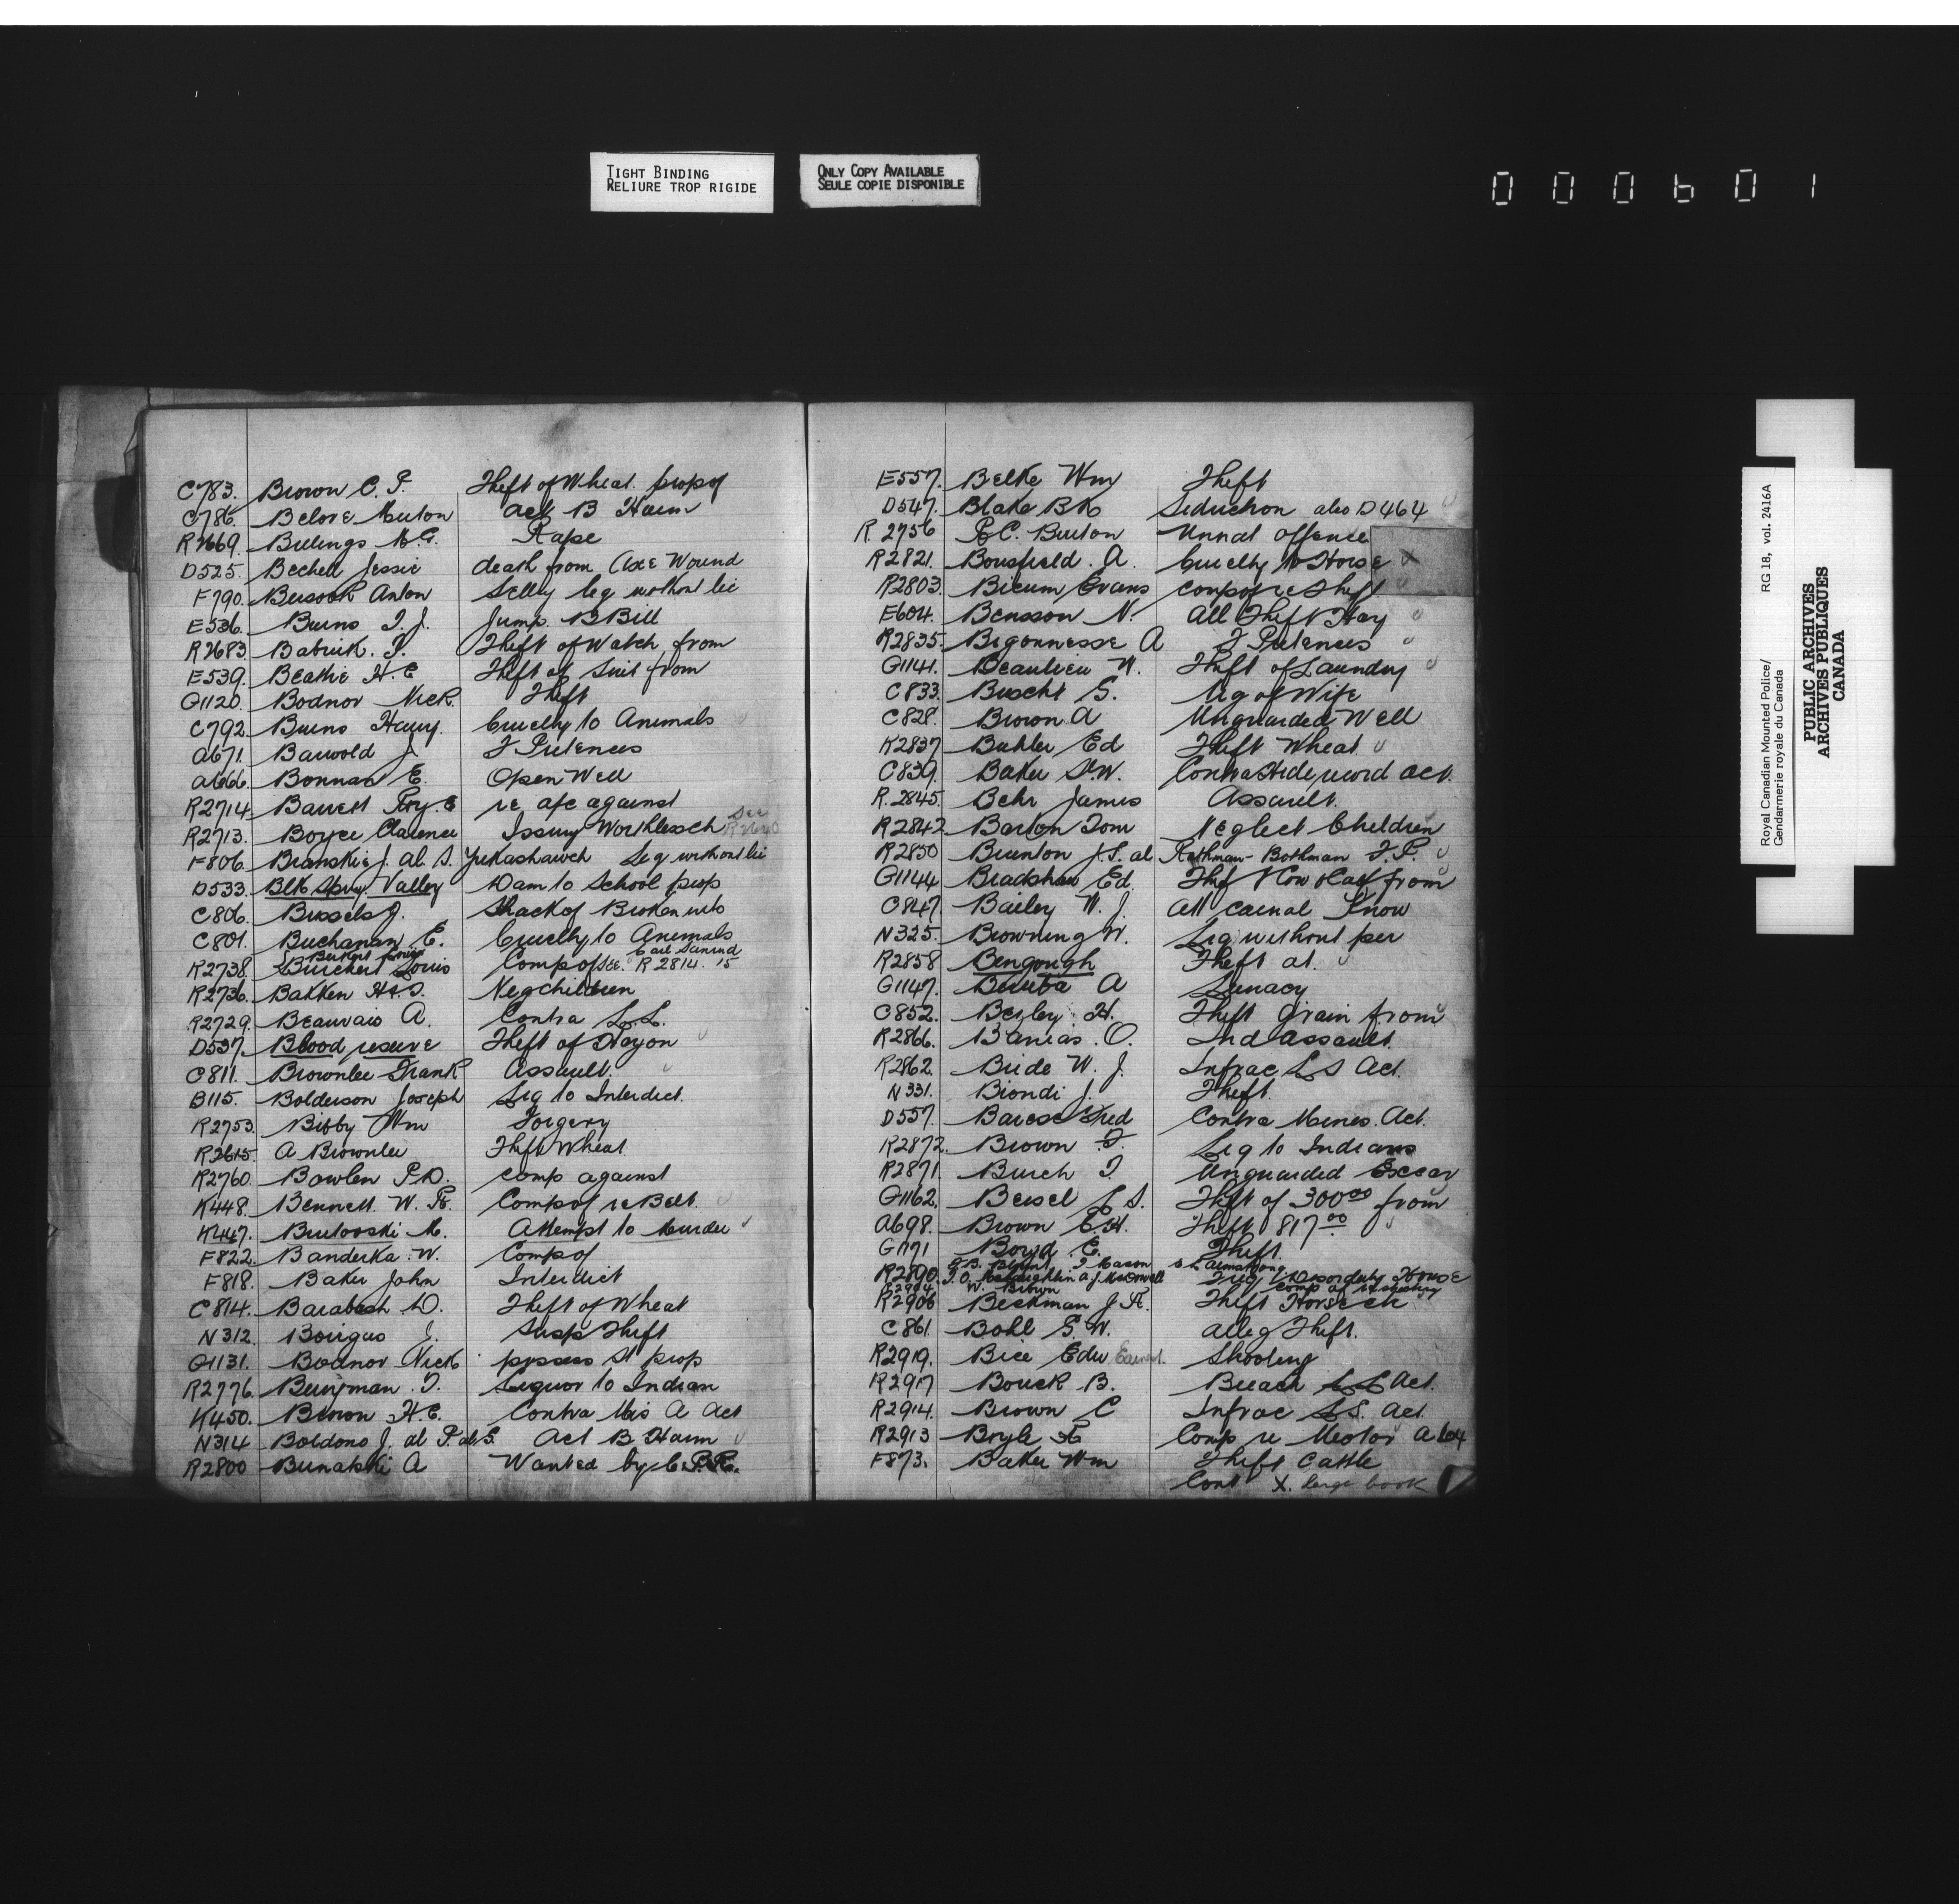 TIGHT BINDING
RELIURE TROP RIGIDE
ONLY COPY AVAILABLE
SEULE COPIE DISPONIBLE
000601
C783. Brown C. P. Theft of Wheat prop of
C786. Belove Milton act B Harm
R2669. Billings M.G. Rape
D525. Bechell Jessie death from Axe Wound
F790. Anton Selly liq without lic
E536. Burns T. J. Jump B Bill
R2683. Babruk. P. Theft of Watch from
E539. Beattie H. E Theft of Suit from
G1120. Bodnor Nick. Theft
C792. Burns Harry. Cruelty to Animals
A671. Barwold J. F Pretences
A666. Bonnar E. Open Well
R2714. Barrett Roy. E re afc against
R2713. Boyce Clarence Issuing Worthless ch See
F806. Branski J. al. S. Yukashawch Liq without lic
D533. Blk Spring Valley Dam to School prop
C806. Bissels J. Shack of Broken into
C801. Buchanan E. Cruelty to Animals
R2738. Burchert Louis Comp of see. R 2814. 15
R2736. Bakken H.S. Neg children
R2729. Beauvais A. Contra L.L.
D537. Blood reserve Theft of Hay on
C811. Brownlee Frank Assault.
B115. Bolderson Joseph Liq to Interdict.
R2753. Bibby Wm Forgery
R2615. A Brownlee Theft Wheat
R2760. Bowlen P.D. comp against
K448. Bennett. W. R. Comp of re Belt
K447. Brutovski M. Attempt to Murder
F822. Banderka. W. Comp of
F818. Baker John Interdict
C814. Barabash D. Theft of Wheat
N312. Bourgus J. Susp Theft
G1131. Bodnor Nick possess st prop
R2776. Berryman. T. Liquor to Indian
K450. Brown H.E. Contra Mis A Act
N314 Boldono J. al P. al S. Act B Harm
R2800 Bunatski A Wanted by C.P.R.
E557. Belke Wm Theft
D547. Blake BK Seduction also D464
R. 2756 R.C. Burton Unnat offence
R2821. Bousfield. A. Cruelty to Horse X
R2803. Bicum Evans comp of re theft
E604. Bensson N. All Theft Hay
R2835. Bigonnesse A F Pretences
G1141. Beaulieu W. Theft of Laundry
C833. Buscht G. Neg of Wife
C828. Brown A Unguarded Well
K2837 Buhler Ed Theft Wheat
C839. Baker S.W. Contra Hide record act.
R. 2845. Behr James Assault.
R2842 Barton Tom Neglect Children
R2850 Brunton J.S. al Rothman - Bothman F.P.
G1144 Bradshaw Ed. Thef 1 Cow & Calf from
C847. Bailey W. J. All carnal Know
N325. Browning W. Liq without per
R2858 Bengough Theft at.
G1147. A Lunacy
C852. Besley H. Theft Grain from
R2866. Banias. O. Ind Assault.
R2862. Bride W. J. Infrac L S Act.
N331. Biondi J. Theft.
D557. Barese Fred Contra Mines. Act.
R2872. Brown F. Liq to Indians
R2871. Burch T. Unguarded Excav
G1162. Beisel L S. Theft of 300.00 from
A698. Brown E.H. Theft 817.00
G1171 Boyd E. Theft.
G.B. Blunt T Mason S L Armstrong
R2890. T. O. McLaughlin A. J. McDowell Disorderly House
R2904 W. Brown Comp of
R2906 Beckman J R. Theft Horse
C861. Bohl G. W. Alleg Theft.
R2919. Bice Edw Earnest. Shooting
R2917 Bouck B. Breach L L Act.
R2914. Brown C Infrac L S. Act.
R2913 Boyle Comp re Motor
F873. Baker Wm Theft Cattle
Cont X. large book
Royal Canadian Mounted Police/ RG 18, vol. 2416A
Gendarmerie royale du Canada
PUBLIC ARCHIVES
ARCHIVES PUBLIQUES
CANADA